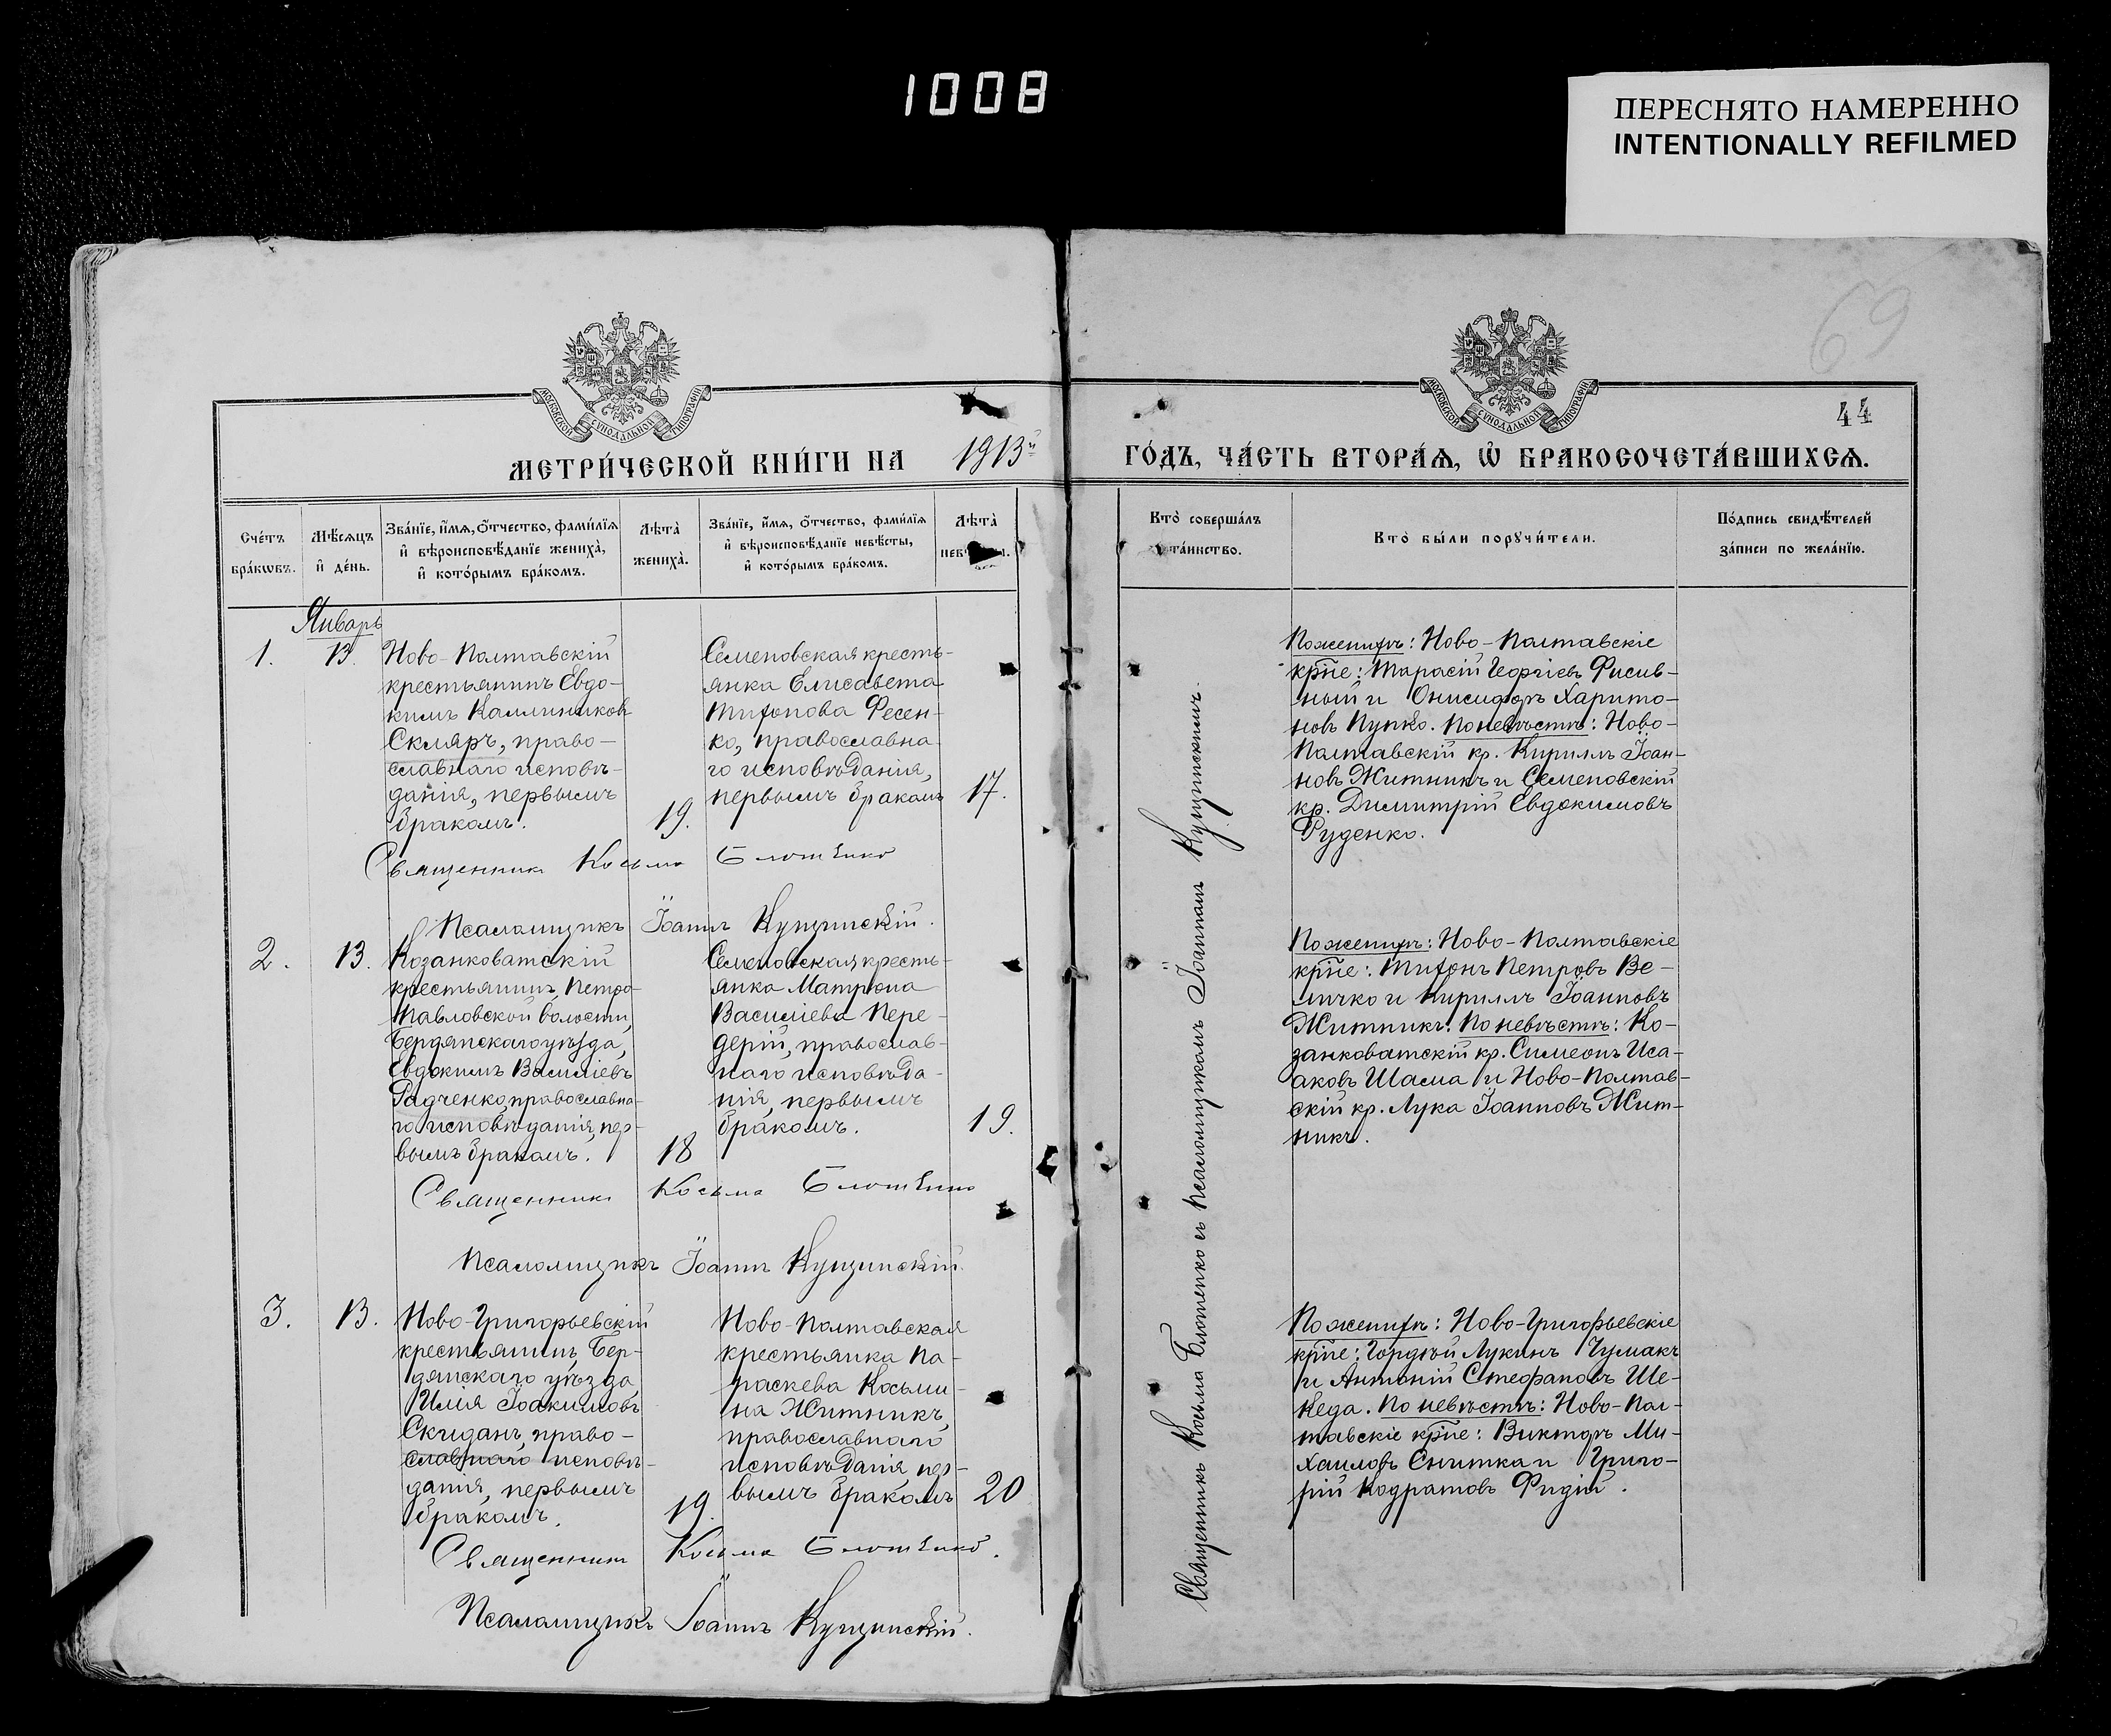 1008
ПЕРЕСНЯТО НАМЕРЕННО
INTENTIONALLY REFILMED
69
МОСКОВСКОЙ СУНОДАЛЬНОЙ ТИПОГРАФІИ
МОСКОВСКОЙ СУНОДАЛЬНОЙ ТИПОГРАФІИ
44
МЕТРИ́ЧЕСКОЙ КНИ́ГИ НА 1913й ГО́ДЪ, ЧА́СТЬ ВТОРА́Ѧ, Ѡ҆ БРАКОСОЧЕТА́ВШИХСѦ.
Сче́тъ
бра́кѡвъ.
Мѣ́сѧцъ
и҆ де́нь.
Зва́нїе, и҆́мѧ, о҆́тчество, фами́лїѧ
и҆ вѣроисповѣ́данїе жениха̀,
и҆ кото́рымъ бра́комъ.
Лѣта̀
жениха̀.
Зва́нїе, и҆́мѧ, о҆́тчество, фами́лїѧ
и҆ вѣроисповѣ́данїе невѣ́сты,
и҆ кото́рымъ бра́комъ.
Лѣта̀
Кто̀ соверша́лъ
та́инство.
Кто̀ бы́ли порꙋчи́тели.
По́дпись свидѣ́телей
за́писи по жела́нїю.
Январь
1.
13.
Ново-Полтавскій
крестьянинъ Евдо-
кимъ Каллиниковъ
Скляръ, право-
славнаго исповѣ-
данія, первымъ
бракомъ.
19.
Семеновская кресть-
янка Елисавета
Тихонова Фесен-
ко, православна-
го исповѣданія,
первымъ бракомъ
17.
По женихѣ: Ново-Полтавскіе
кр͞не: Тарасій Георгіевъ Фисив-
ный и Онисифоръ Харито-
новъ Пупко. По невѣстѣ: Ново-
Полтавскій кр. Кириллъ Іоан-
новъ Житникъ и Семеновскій
кр. Димитрій Евдокимовъ
Руденко.
Священникъ Косьма Блотенко
Псаломщикъ Іоаннъ Кущинскій.
2.
13.
Козанковатскій
крестьянинъ, Петро-
Павловской волости,
Бердянскаго уѣзда,
Евдокимъ Василіевъ
Радченко, православна-
го исповѣданія, пер-
вымъ бракомъ.
18
Семеновская кресть-
янка Матрона
Василіева Пере-
дерій, православ-
наго исповѣда-
нія, первымъ
бракомъ.
19.
По женихѣ: Ново-Полтавскіе
кр͞не: Тихонъ Петровъ Ве-
личко и Кириллъ Іоанновъ
Житникъ. По невѣстѣ: Ко-
занковатскій кр. Симеонъ Иса-
аковъ Шама и Ново-Полтав-
скій кр. Лука Іоанновъ Жит-
никъ.
Священникъ Косьма Блотенко
Псаломщикъ Іоаннъ Кущинскій.
3.
13.
Ново-Григорьевскій
крестьянинъ, Бер-
дянскаго уѣзда
Илія Іоакимовъ
Скиданъ, право-
славнаго исповѣ-
данія, первымъ
бракомъ.
19.
Ново-Полтавская
крестьянка Па-
раскева Косьми-
на Житникъ,
православнаго
исповѣданія, пер-
вымъ бракомъ
20
По женихѣ: Ново-Григорьевскіе
кр͞не: Гордѣй Лукинъ Чумакъ
и Антоній Стефановъ Ше-
кеда. По невѣстѣ: Ново-Пол-
тавскіе кр͞не: Викторъ Ми-
хаиловъ Снитка и Григо-
рій Кодратовъ Фидій.
Священникъ Косьма Блотенко.
Псаломщикъ Іоаннъ Кущинскій.
Священникъ Косьма Блотенко съ псаломщикомъ Іоанномъ Кущинскимъ.